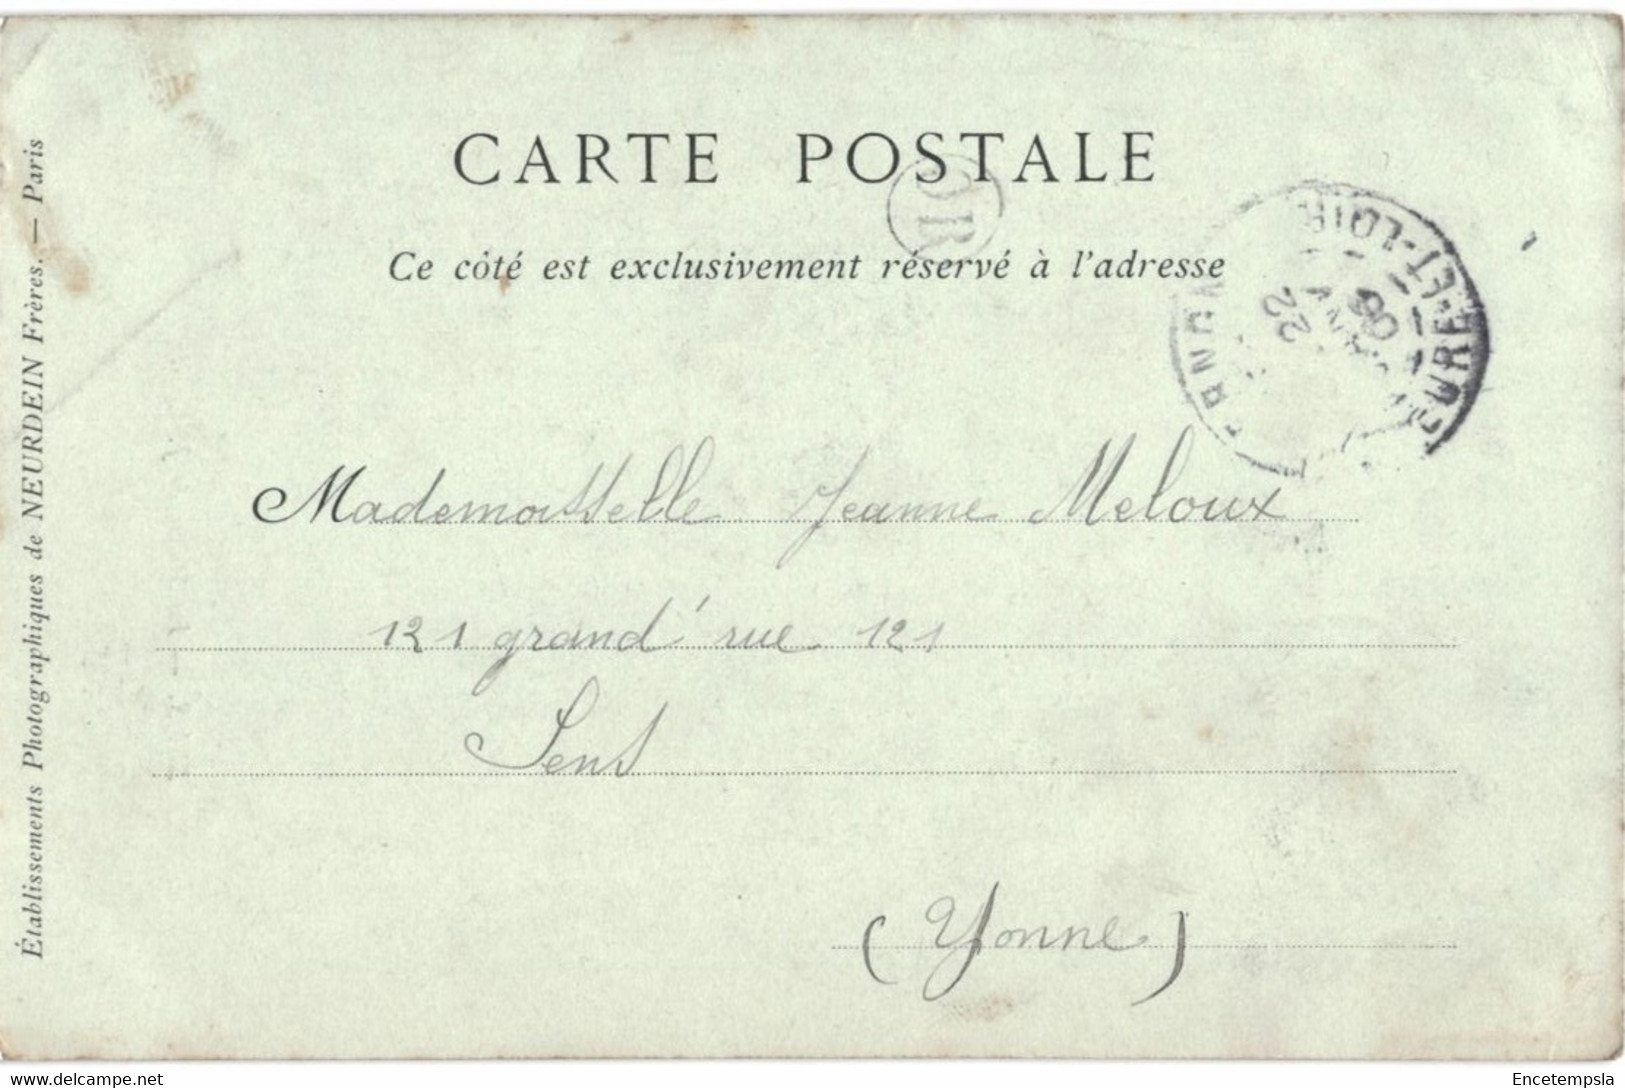 CARTE POSTALE
OR
Ce côté est exclusivement réservé à l'adresse
EURE-ET-LOIR
22
08
Mademoisselle Jeanne Meloux
121 grand' rue 121
Sens
(Yonne)
Établissements Photographiques de NEURDEIN Frères. — Paris
www.delcampe.net
Encetempsla